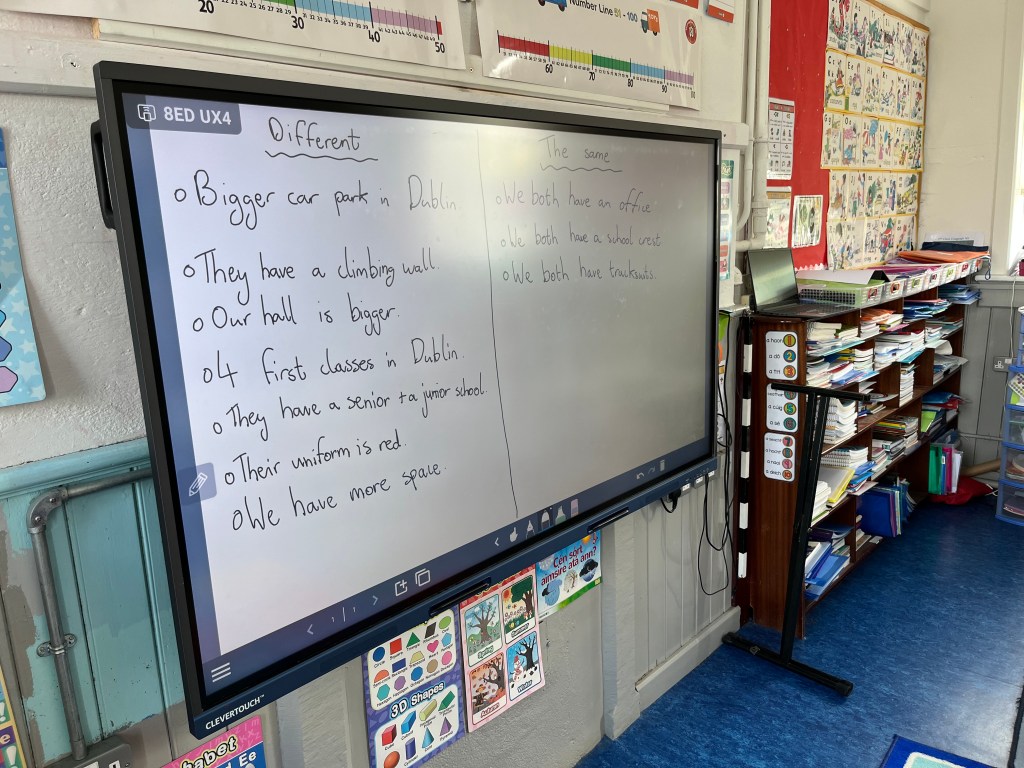 20 30 40 50
Number Line 51 - 100
60 70 80 90
8ED UX4
Different
o Bigger car park in Dublin.
o They have a climbing wall.
o Our hall is bigger.
o 4 first classes in Dublin.
o They have a senior + a junior school.
o Their uniform is red.
o We have more space.
The same
o We both have an office
o We both have a school crest
o We both have tracksuits.
CLEVERTOUCH™
3D Shapes
Spring
Autumn
Winter
Cén sórt
aimsire atá ann?
a haon 1
a dó 2
a trí 3
a cúig 5
a sé